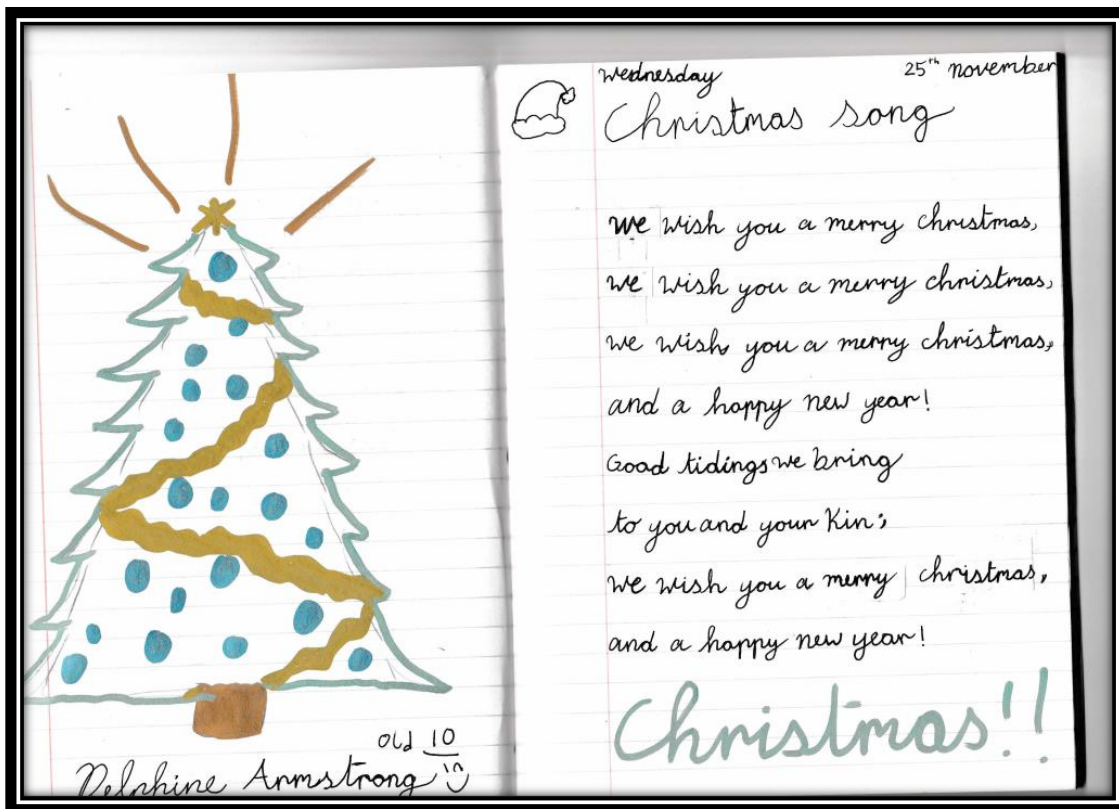 Old 10
Delphine Armstrong
wednesday 25th november
Christmas song
we wish you a merry christmas,
we wish you a merry christmas,
we wish you a merry christmas,
and a happy new year!
Good tidings we bring
to you and your Kin;
we wish you a merry christmas,
and a happy new year!
Christmas!!